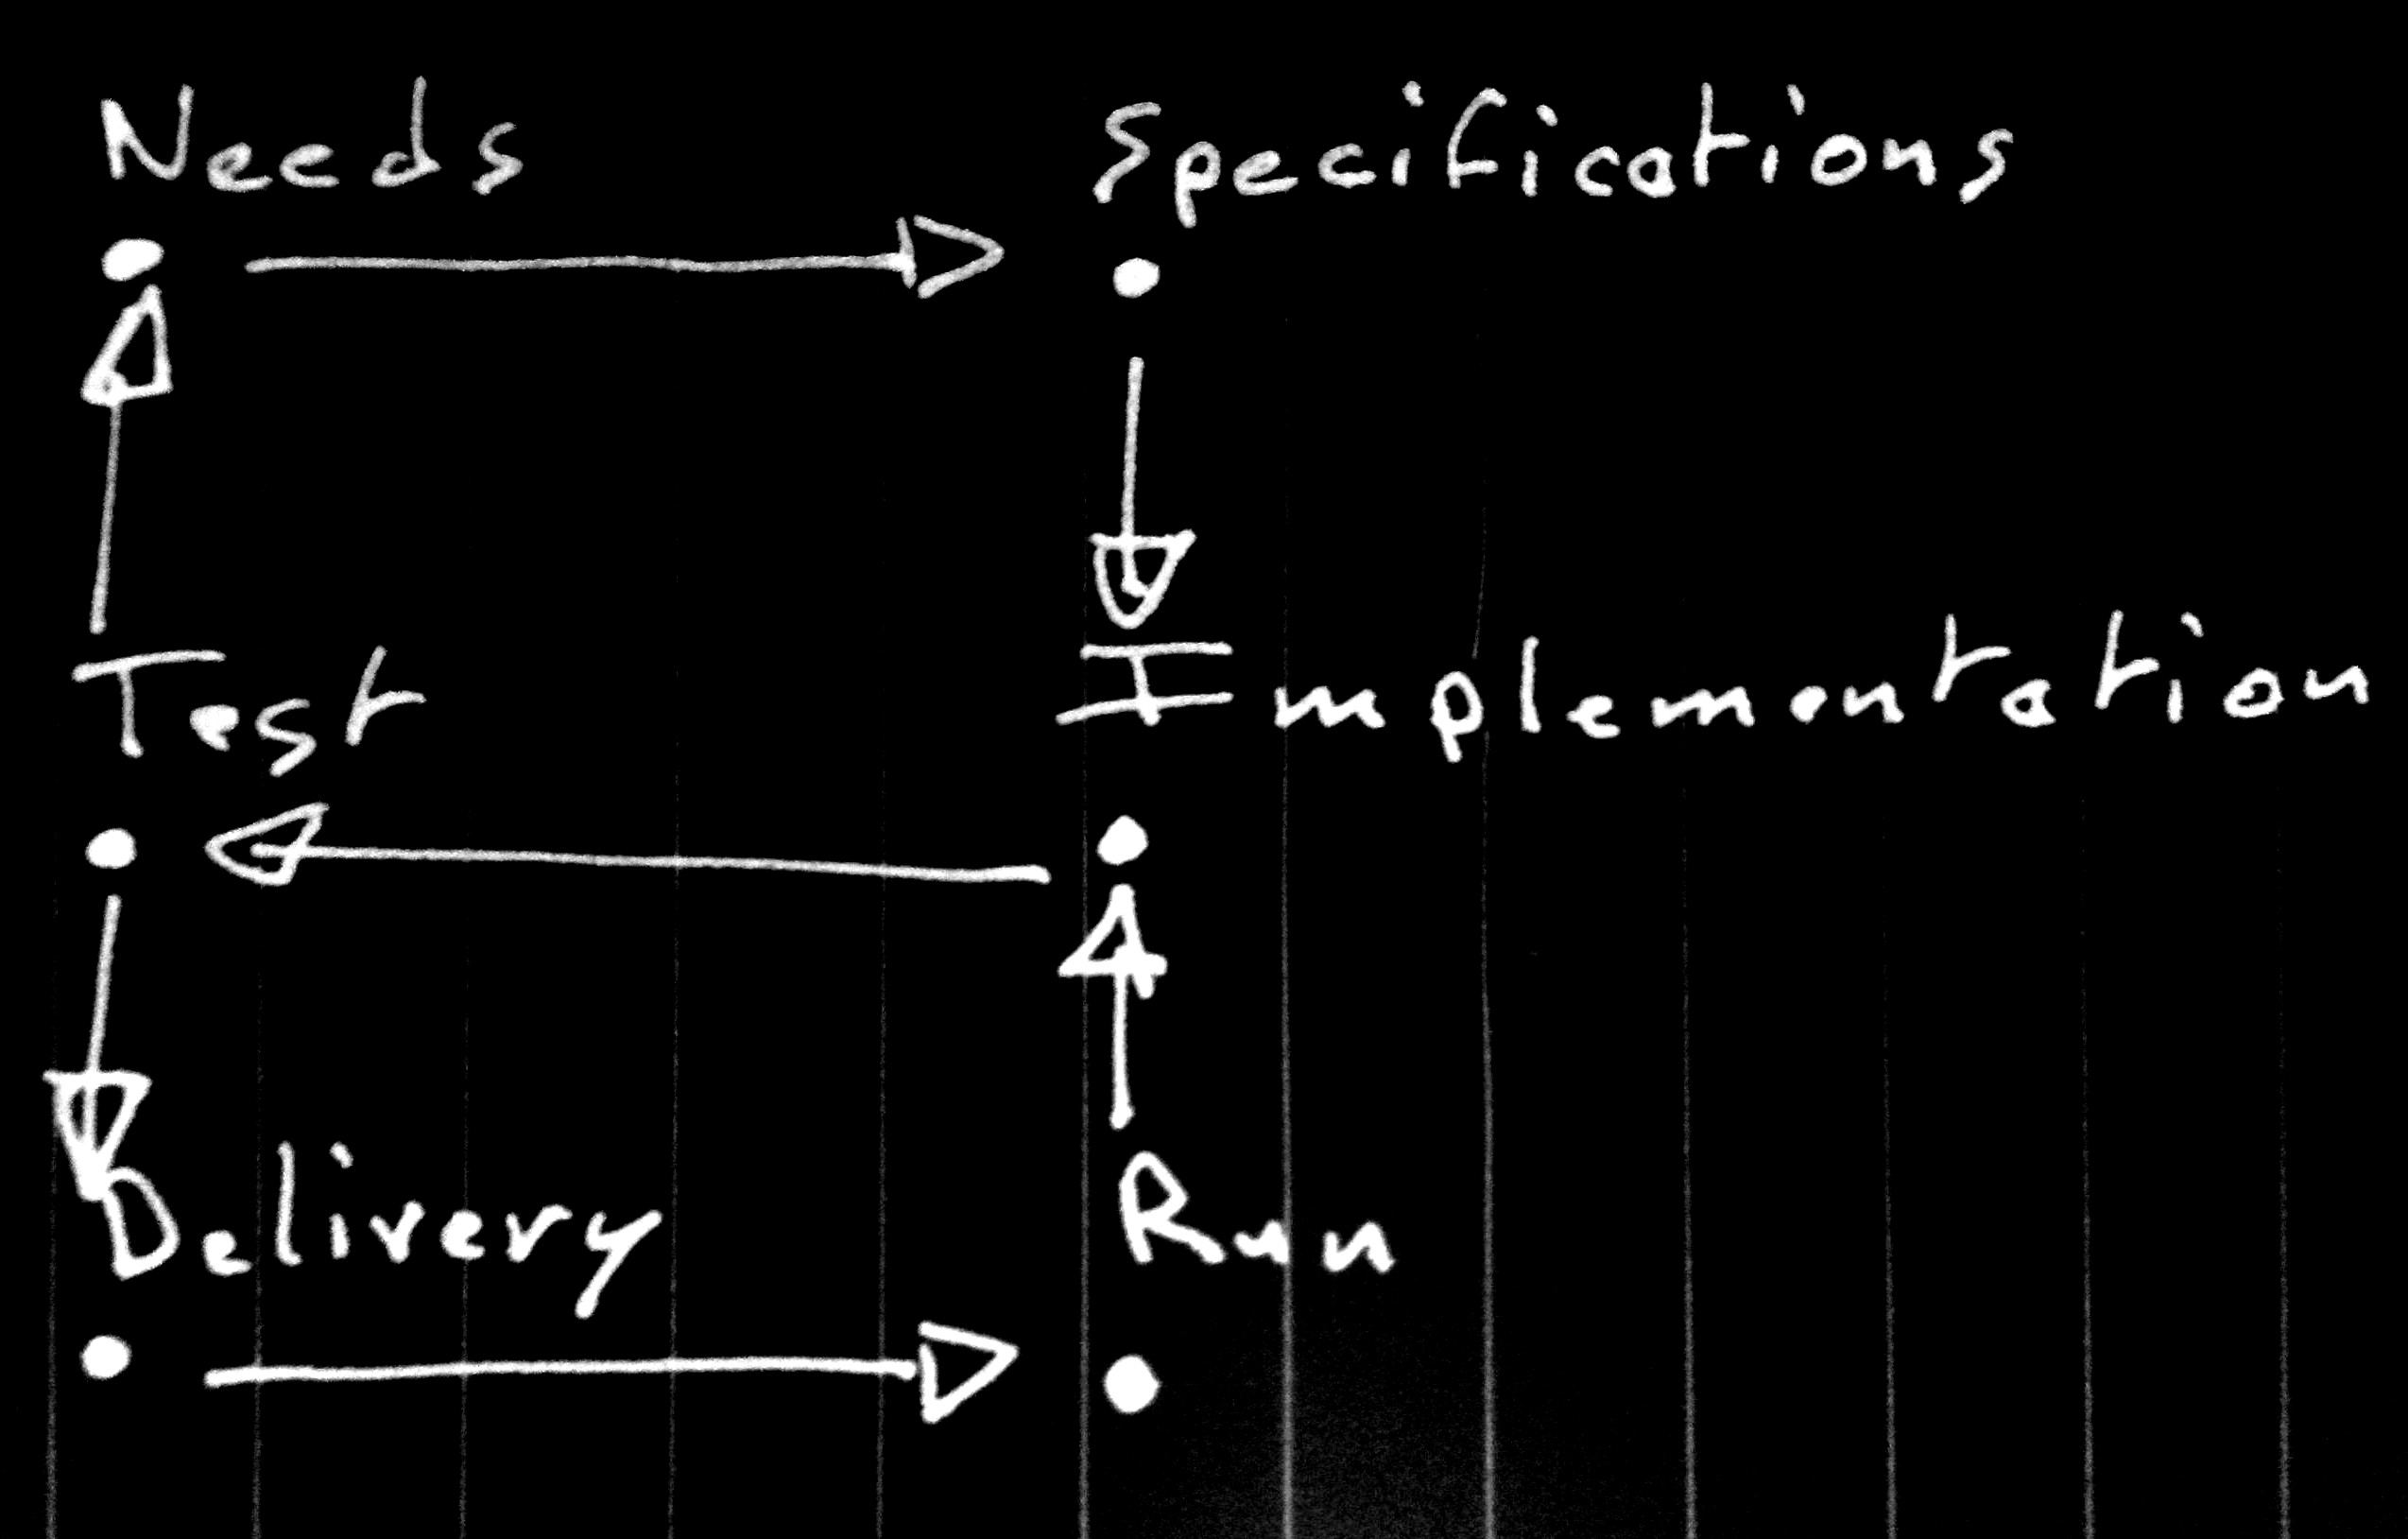 Needs Specifications
Test Implementation
Delivery Run